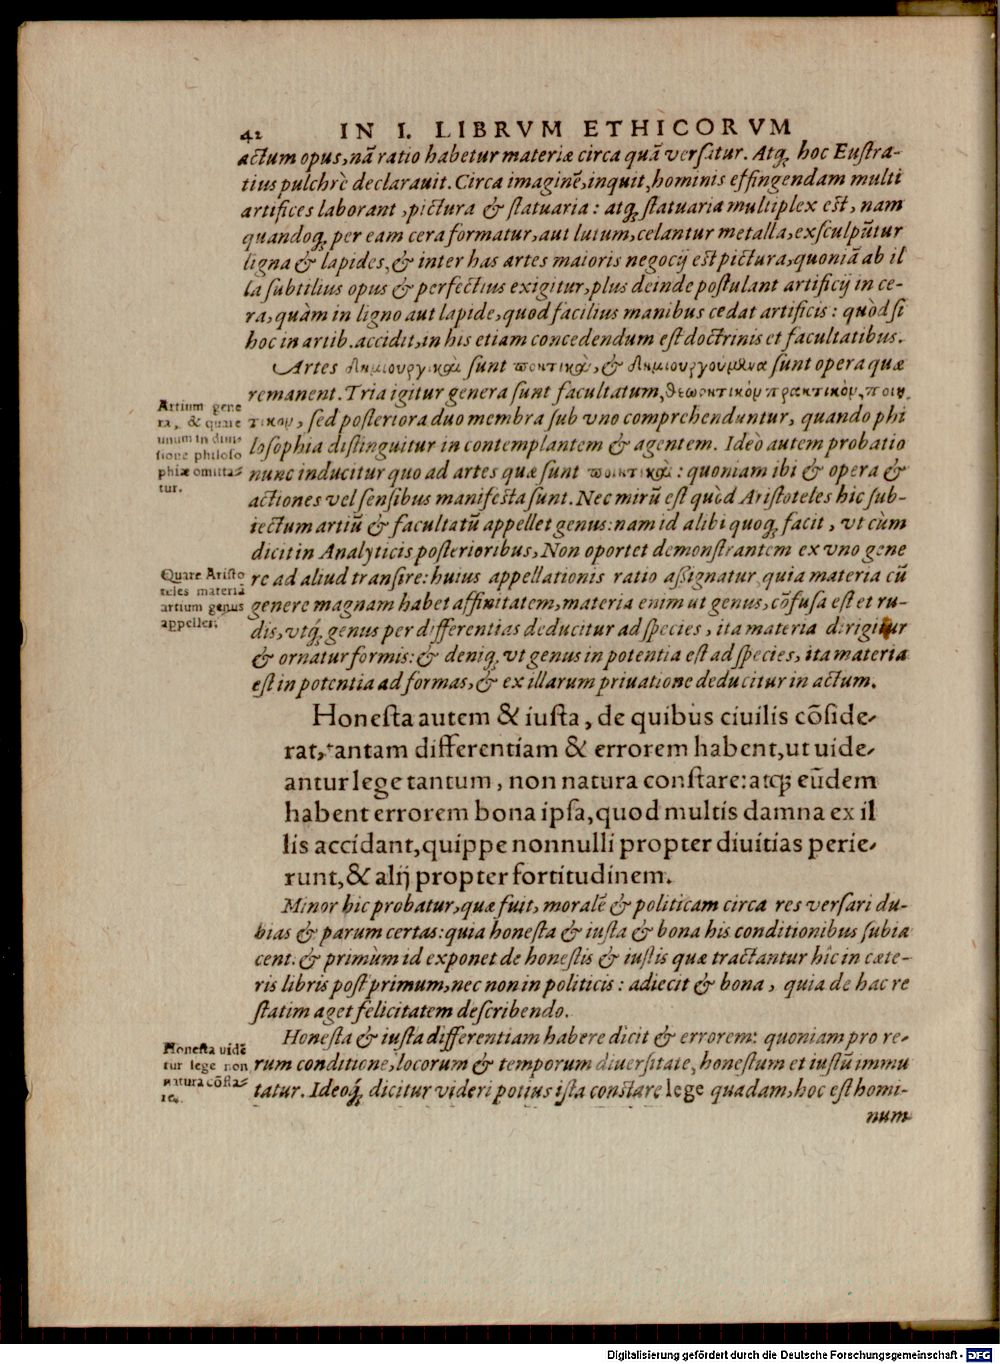 42 IN I. LIBRVM ETHICORVM
actum opus, nã ratio habetur materiæ circa quã versatur. Atq; hoc Eustra-
tius pulchrè declarauit. Circa imaginẽ, inquit, hominis effingendam multi
artifices laborant, pictura & statuaria: atq; statuaria multiplex est, nam
quandoq; per eam cera formatur, aut lutum, celantur metalla, exsculpũtur
ligna & lapides, & inter has artes maioris negocij est pictura, quoniã ab il
la subtilius opus & perfectius exigitur, plus deinde postulant artificij in ce-
ra, quàm in ligno aut lapide, quod facilius manibus cedat artificis: quòd si
hoc in artib. accidit, in his etiam concedendum est doctrinis et facultatibus.
Artes δημιουργικαὶ sunt ποιητικαὶ, & δημιουργούμενα sunt opera quæ
remanent. Tria igitur genera sunt facultatum, θεωρητικὸν πρακτικὸν, ποιη
Artium gene
ra, & quare
unum in diui
sione philoso
phiæ omitta-
tur.
τικον, sed posteriora duo membra sub vno comprehenduntur, quando phi
losophia distinguitur in contemplantem & agentem. Ideò autem probatio
nunc inducitur quo ad artes quæ sunt ποιητικαὶ: quoniam ibi & opera &
actiones vel sensibus manifesta sunt. Nec mirũ est quòd Aristoteles hic sub-
iectum artiũ & facultatũ appellet genus: nam id alibi quoq; facit, vt cùm
dicit in Analyticis posterioribus, Non oportet demonstrantem ex vno gene
Quare Aristo
teles materiã
artium genus
appellet.
re ad aliud transire: huius appellationis ratio assignatur quia materia cũ
genere magnam habet affinitatem, materia enim ut genus, cõfusa est et ru-
dis, vtq; genus per differentias deducitur ad species, ita materia dirigitur
& ornatur formis: & deniq; vt genus in potentia est ad species, ita materia
est in potentia ad formas, & ex illarum priuatione deducitur in actum.
Honesta autem & iusta, de quibus ciuilis cõside-
rat, tantam differentiam & errorem habent, ut uide-
antur lege tantum, non natura constare: atq; eũdem
habent errorem bona ipsa, quod multis damna ex il
lis accidant, quippe nonnulli propter diuitias perie-
runt, & alij propter fortitudinem.
Minor hic probatur, quæ fuit, moralẽ & politicam circa res versari du-
bias & parum certas: quia honesta & iusta & bona his conditionibus subia
cent. & primùm id exponet de honestis & iustis quæ tractantur hîc in cæte-
ris libris post primum, nec non in politicis: adiecit & bona, quia de hac re
statim aget felicitatem describendo.
Honesta & iusta differentiam habere dicit & errorem: quoniam pro re-
Honesta uidẽ
tur lege non
natura cõsta-
re.
rum conditione, locorum & temporum diuersitate, honestum et iustũ immu
tatur. Ideoq; dicitur videri potius ista constare lege quadam, hoc est homi-
num
Digitalisierung gefördert durch die Deutsche Forschungsgemeinschaft - DFG